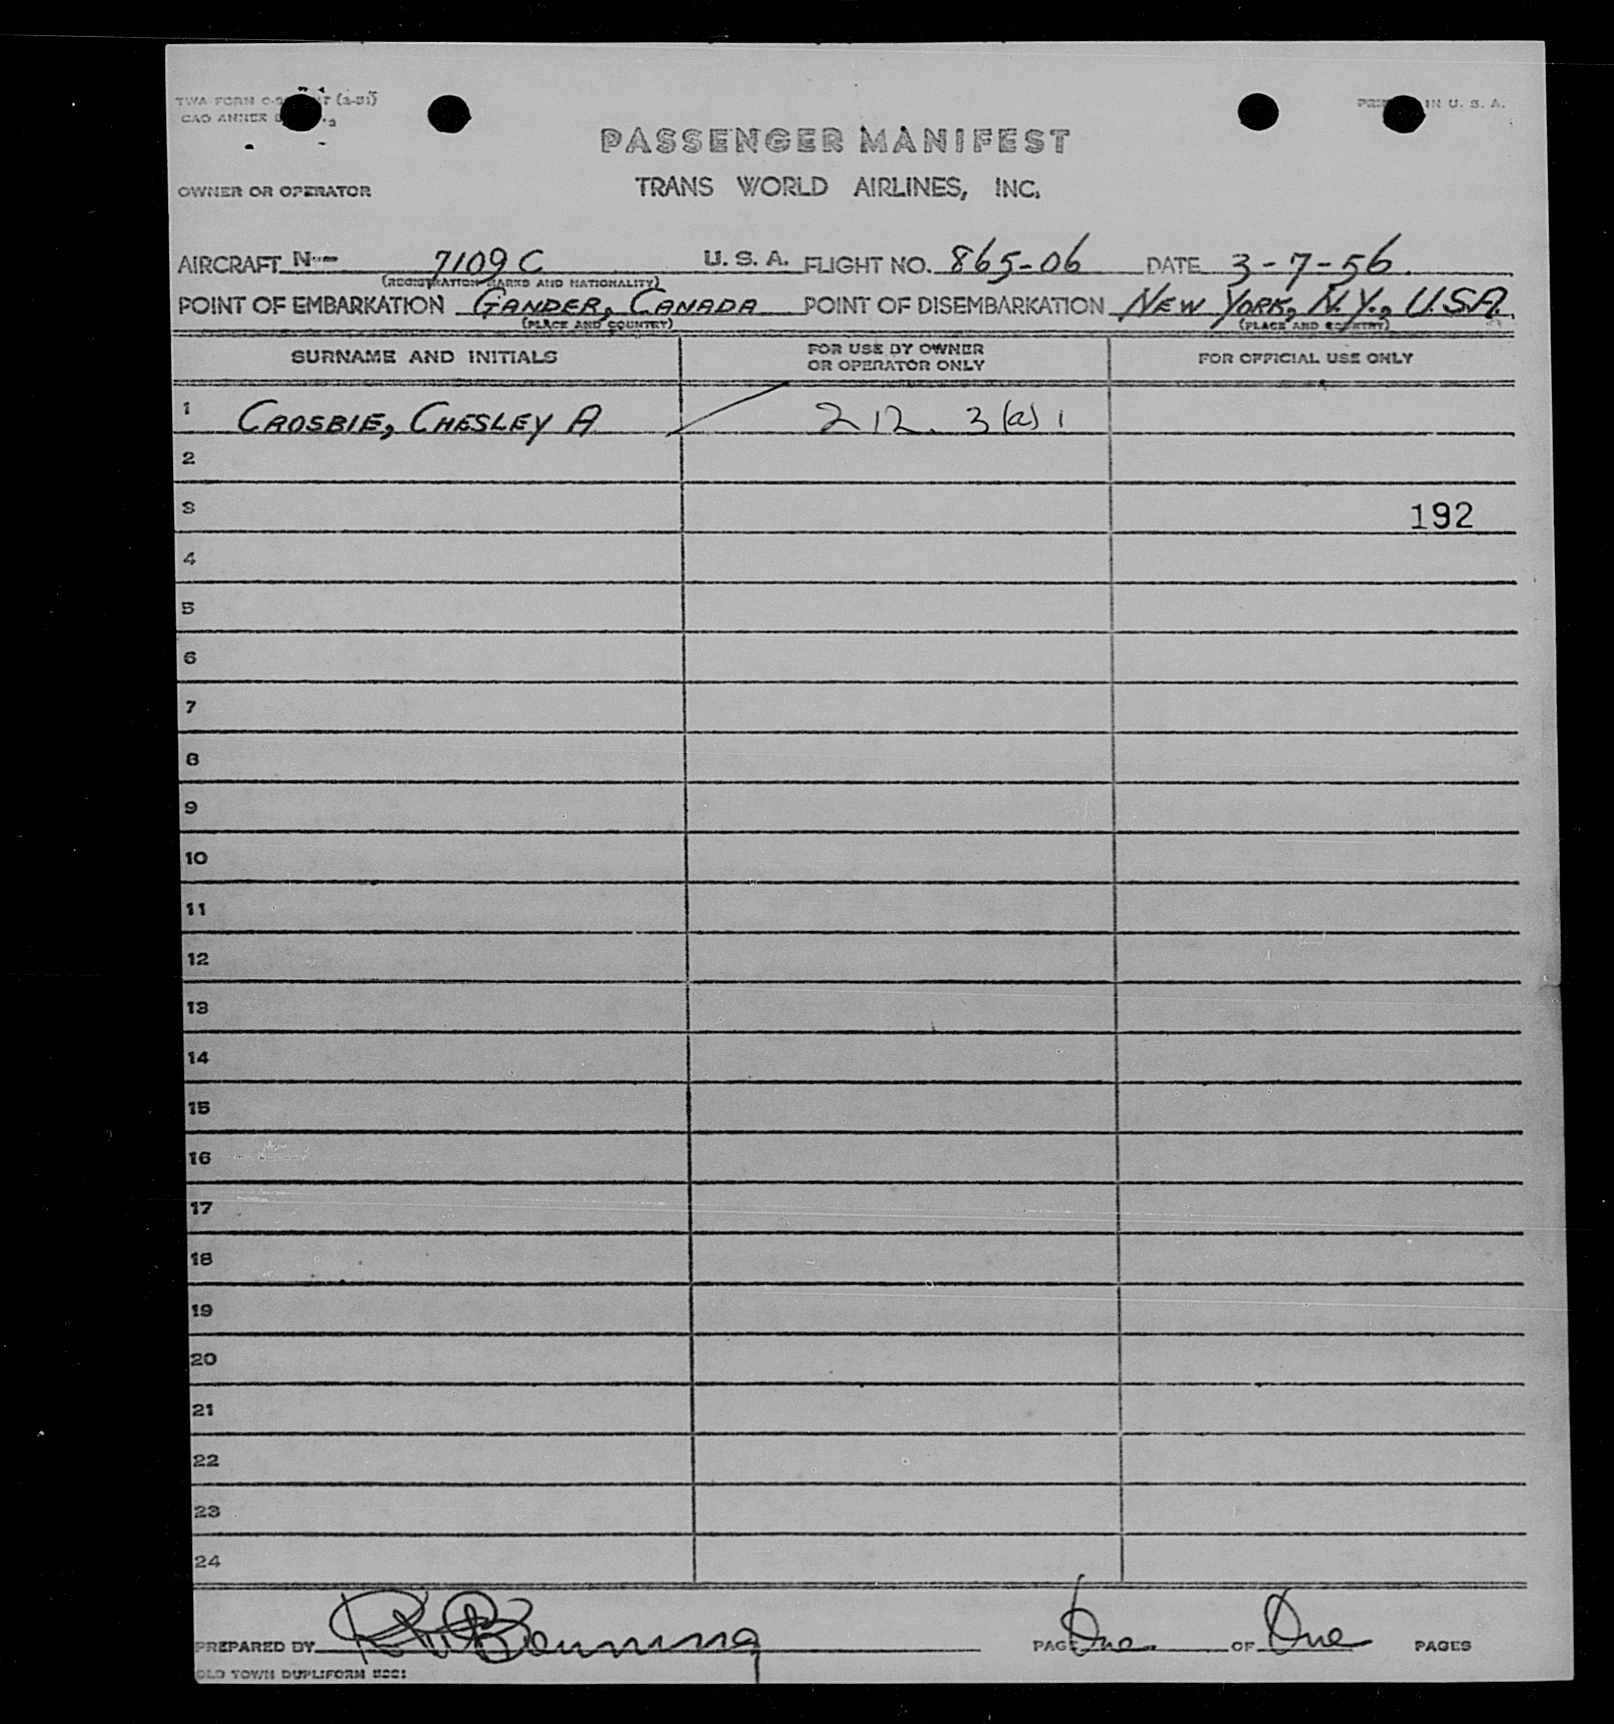 TWA FORM
PRINTED IN U. S. A.
CAO ANNEX
PASSENGER MANIFEST
OWNER OR OPERATOR
TRANS WORLD AIRLINES, INC.
AIRCRAFT N-- 7109C U. S. A. FLIGHT NO. 865-06 DATE 3-7-56
(REGISTRATION MARKS AND NATIONALITY)
POINT OF EMBARKATION GANDER, CANADA POINT OF DISEMBARKATION NEW YORK, N.Y., U.S.A.
(PLACE AND COUNTRY) (PLACE AND COUNTRY)
SURNAME AND INITIALS FOR USE BY OWNER OR OPERATOR ONLY FOR OFFICIAL USE ONLY
1 CROSBIE, CHESLEY A 212. 3(a) 1
2
3 192
4
5
6
7
8
9
10
11
12
13
14
15
16
17
18
19
20
21
22
23
24
PREPARED BY PAGE One OF One PAGES
OLD TOWN DUPLIFORM